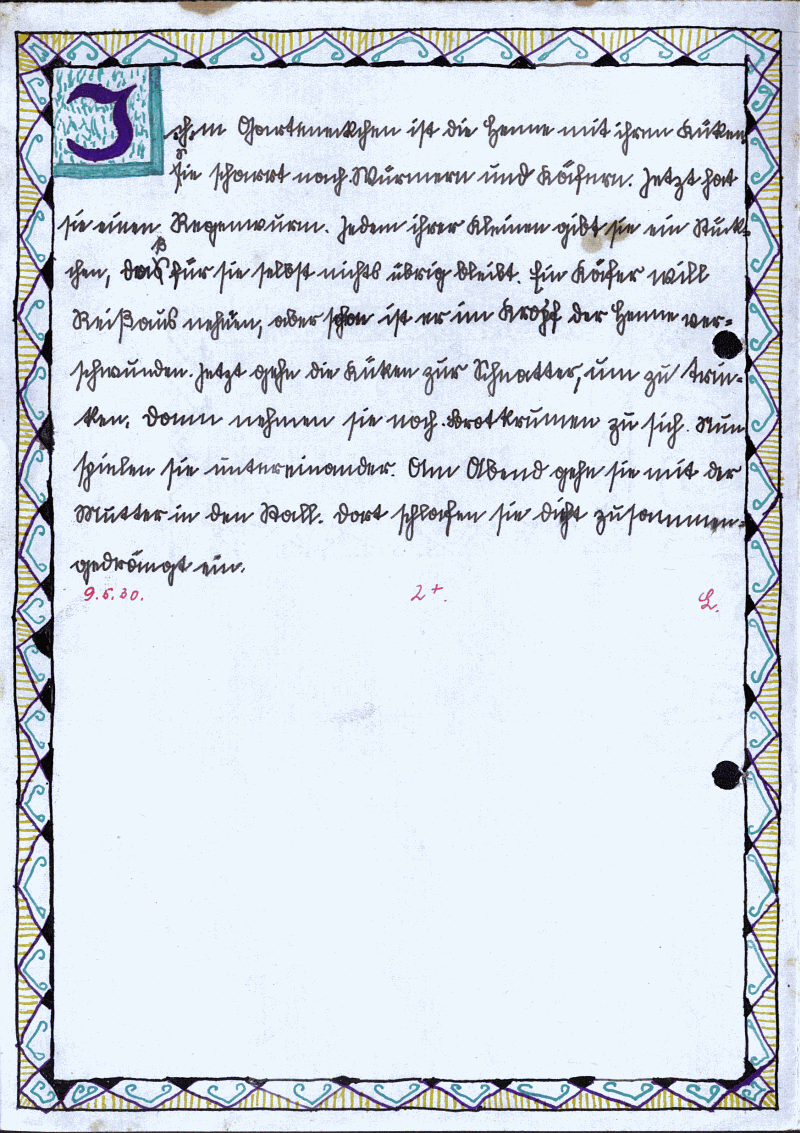 J
m Garteneckchen ist die Henne mit ihren Küken
Sie scharrt nach Würmern und Käfern. Jetzt hat
sie einen Regenwurm. Jedem ihrer Kleinen gibt sie ein Stück-
ß
chen, das für sie selbst nichts übrig bleibt. Ein Käfer will
Reißaus nehmen, aber schon ist er im Kropf der Henne ver-
schwunden. Jetzt gehn die Küken zur Schnatter, um zu trin-
ken. Dann nehmen sie noch Brotkrumen zu sich. Nun
spielen sie untereinander. Am Abend gehn sie mit der
Mutter in den Stall. Dort schlafen sie dicht zusammen-
gedrängt ein.
9.5.30. 2+. L.